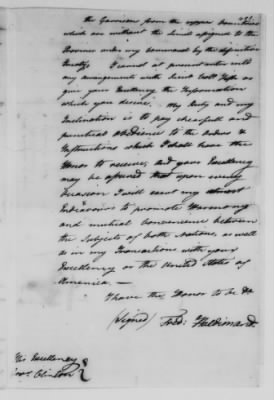 the Garrison from the upper Countries
which are without the limits assigned to the
Province under my command by the definitive
Treaty. I cannot at present enter into
any arrangements with Lieut Coll Fish so as
give your Excellency the Information
which you desire. My Duty and my
Inclination is to pay chearfull and
punctual obedience to the orders &
Instructions which I shall have the
Honor to receive, and your Excellency
may be assured that upon every
Occasion I will exert my utmost
Endeavors to promote Harmony
and mutual Convenience between
the Subjects of both Nations, as well
as in my Transactions with your
Excellency or the United States of
America. —
I have the Honor to be &c
(Signed) Fred: Haldimand.
His Excellency
Govr Clinton